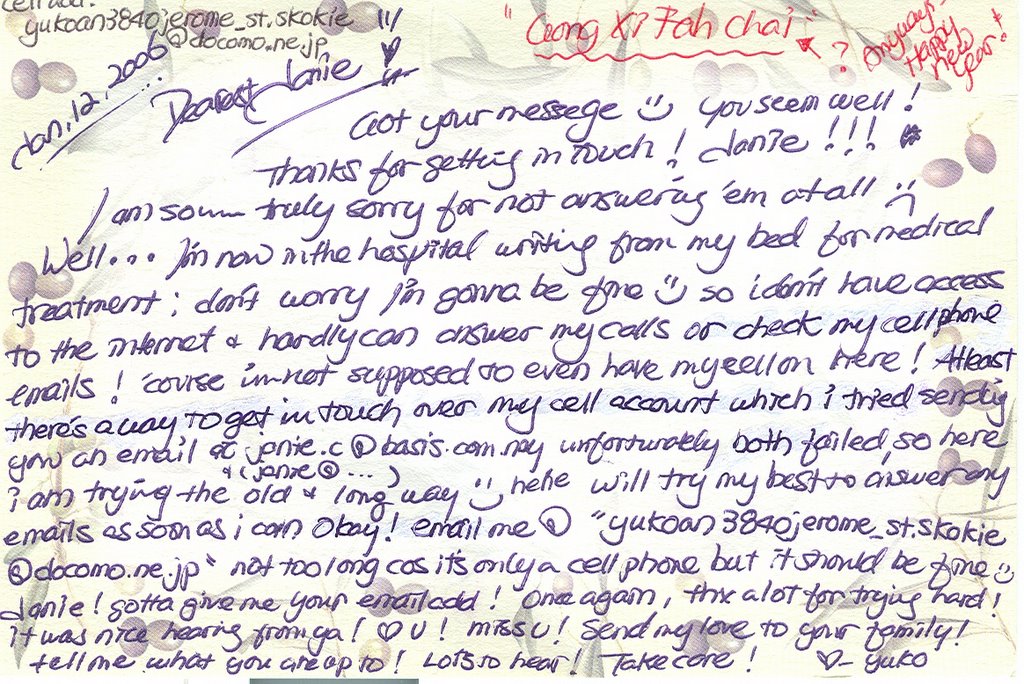 cell add:
yukoan3840jerome_st.skokie
@docomo.ne.jp !!!
"Gong Xi Fah chai"
?
Anyways-
Happy
new
year!
Jan, 12, 2006
Dearest Janie ♡
Got your messege :) You seem well!
Thanks for getting in touch! Janie!!!
I am soun truly sorry for not answering 'em at all :(
Well... I'm now in the hospital writing from my bed for medical
treatment; don't worry I'm gonna be fine :) so i don't have access
to the internet & hardly can answer my calls or check my cell phone
emails! 'course i'm not supposed to even have my cell on here! Atleast
there's a way to get in touch over my cell account which i tried sending
you an email at janie.c@basis.com.my unfortunately both failed, so here
& (janie@...)
i am trying the old & long way :) hehe will try my best to answer any
emails as soon as i can Okay! email me @ "yukoan3840jerome_st.skokie
@docomo.ne.jp" not too long cos it's only a cell phone but it should be fine :)
Janie! gotta give me your email add! Once again, thx a lot for trying hard!
it was nice hearing from ya! ♡ U! miss U! Send my love to your family!
tell me what you are up to! Lots to hear! Take care! ♡- yuko